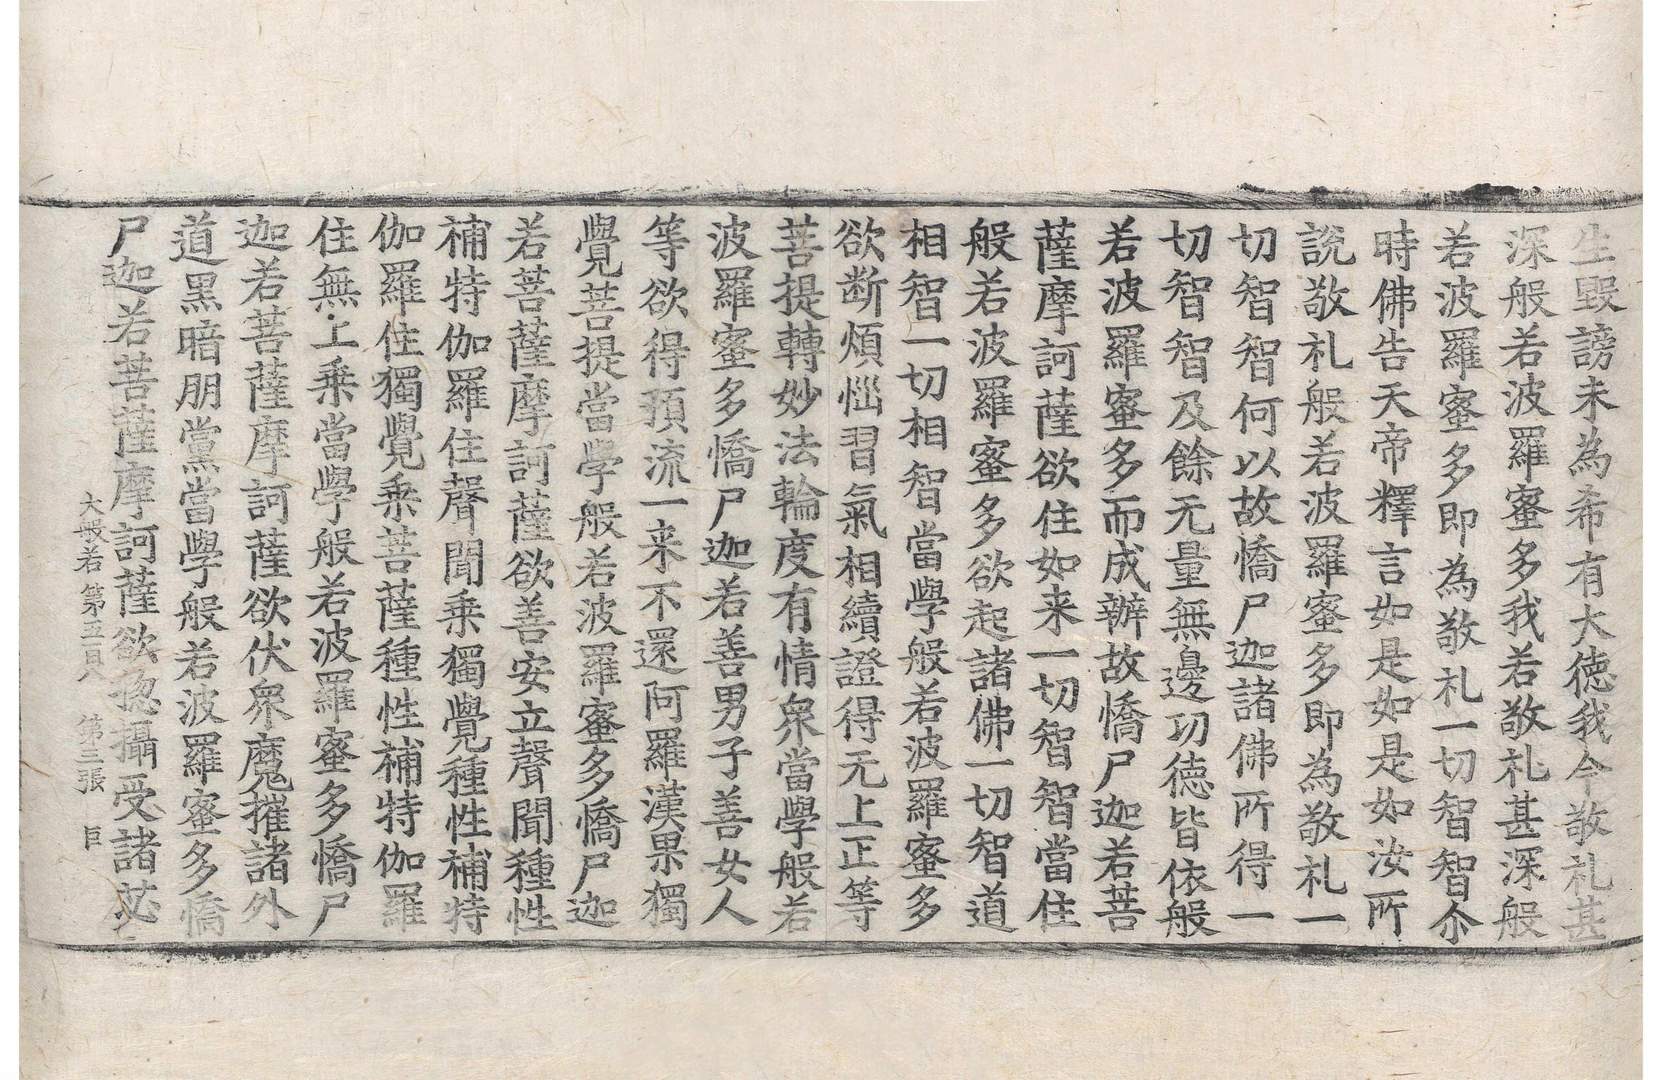 生毀謗未為希有大德我今敬礼甚
深般若波羅蜜多我若敬礼甚深般
若波羅蜜多即為敬礼一切智智尒
時佛告天帝釋言如是如是如汝所
說敬礼般若波羅蜜多即為敬礼一
切智智何以故憍尸迦諸佛所得一
切智智及餘无量無邊功德皆依般
若波羅蜜多而成辦故憍尸迦若菩
薩摩訶薩欲住如来一切智智當住
般若波羅蜜多欲起諸佛一切智道
相智一切相智當學般若波羅蜜多
欲断煩惱習氣相續證得无上正等
菩提轉妙法輪度有情衆當學般若
波羅蜜多憍尸迦若善男子善女人
等欲得預流一来不還阿羅漢果獨
覺菩提當學般若波羅蜜多憍尸迦
若菩薩摩訶薩欲善安立聲聞種性
補特伽羅住聲聞乘獨覺種性補特
伽羅住獨覺乘菩薩種性補特伽羅
住無上乘當學般若波羅蜜多憍尸
迦若菩薩摩訶薩欲伏衆魔摧諸外
道黑暗朋黨當學般若波羅蜜多憍
尸迦若菩薩摩訶薩欲惣攝受諸苾
大般若第五百八 第三張 巨